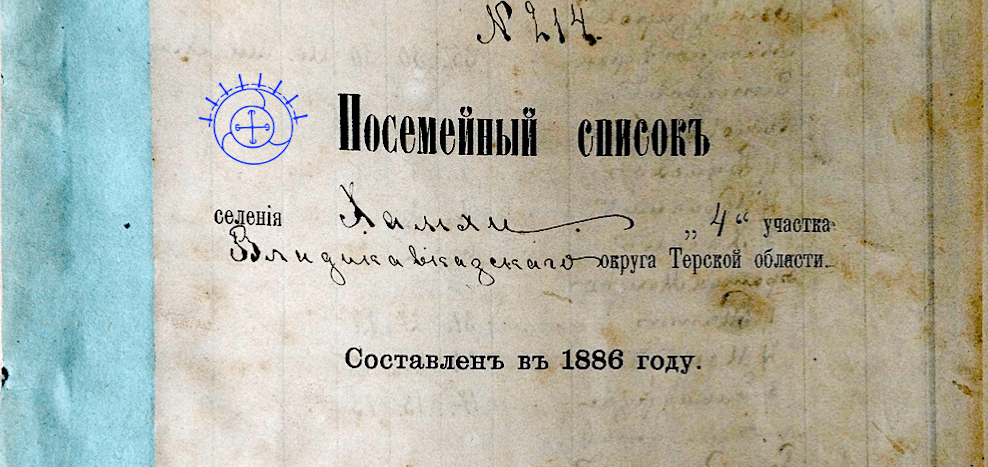 N 214.
Посемейный списокъ
селенія Хамхи „4“ участка
Владикавказскаго округа Терской области.
Составленъ въ 1886 году.